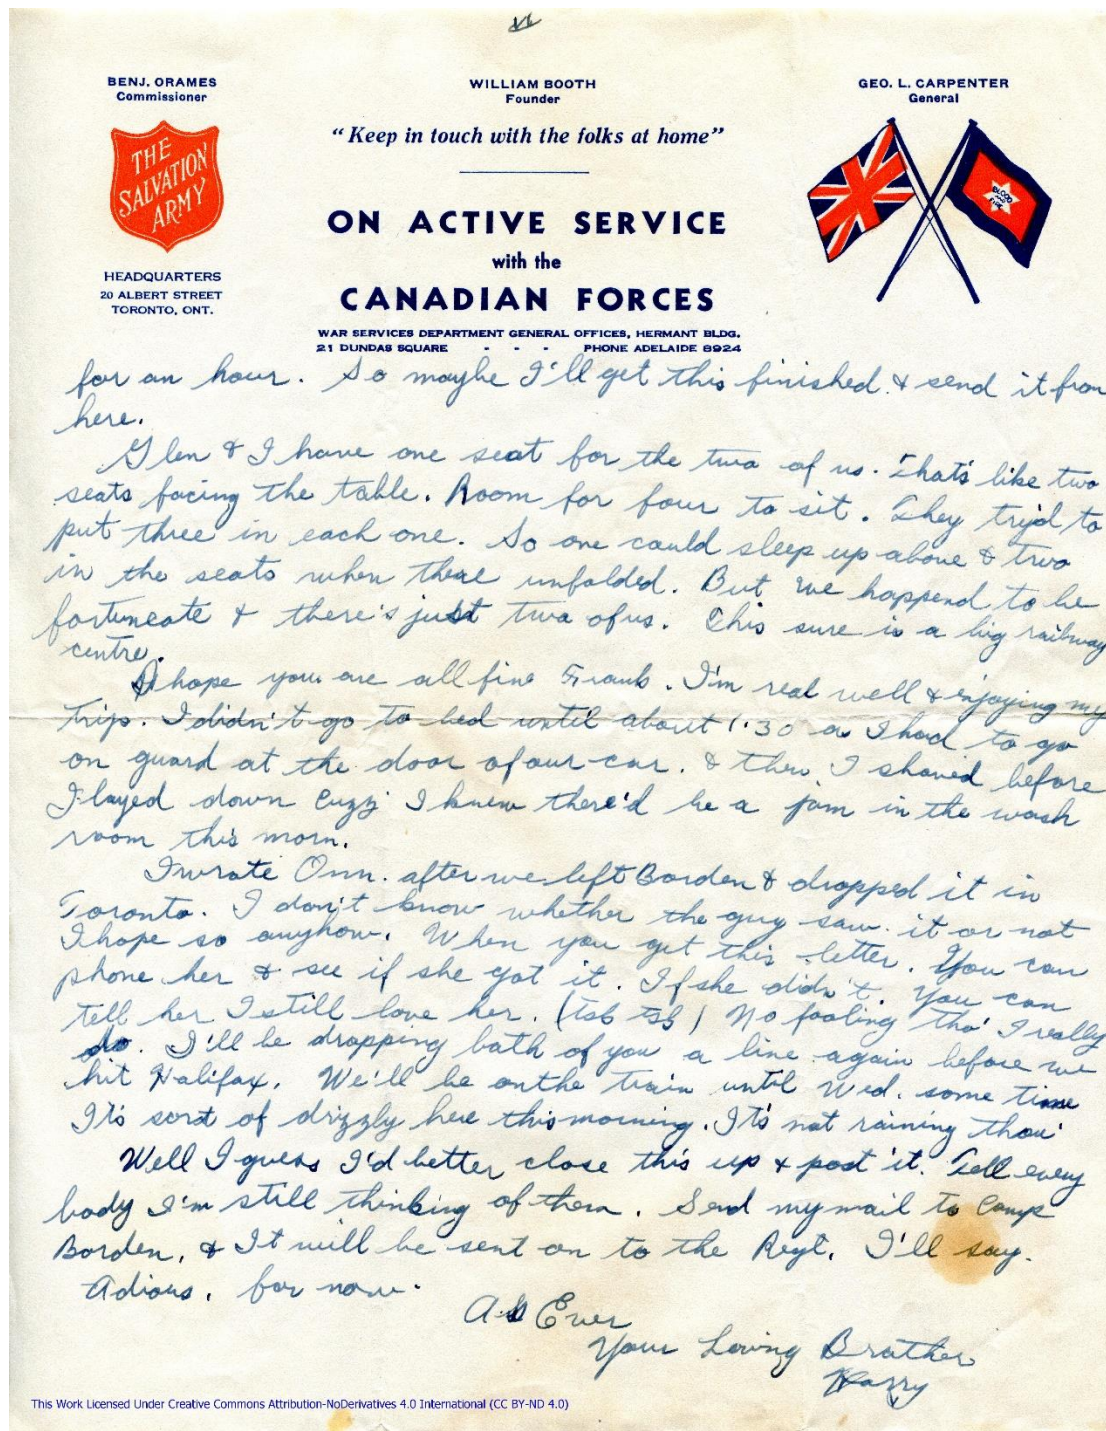 VI
BENJ. ORAMES
Commissioner
WILLIAM BOOTH
Founder
GEO. L. CARPENTER
General
"Keep in touch with the folks at home"
THE
SALVATION
ARMY
BLOOD
AND
FIRE
ON ACTIVE SERVICE
with the
CANADIAN FORCES
HEADQUARTERS
20 ALBERT STREET
TORONTO, ONT.
WAR SERVICES DEPARTMENT GENERAL OFFICES, HERMANT BLDG.
21 DUNDAS SQUARE - - - PHONE ADELAIDE 8924
for an hour. So maybe I'll get this finished & send it from
here.
Glen & I have one seat for the two of us. That's like two
seats facing the table. Room for four to sit. They try'd to
put three in each one. So one could sleep up above & two
in the seats when there unfolded. But we happend to be
fortuneate & there's just two of us. This sure is a big railway
centre.
I hope you are all fine Frank. I'm real well & enjoying my
trip. I didn't go to bed until about 1:30 as I had to go
on guard at the door of our car. & then I shaved before
I layed down cuzz I knew there'd be a jam in the wash
room this morn.
I wrote Onn. after we left Borden & dropped it in
Toronto. I don't know whether the guy saw it or not
I hope so anyhow. When you get this letter. You can
phone her & see if she got it. If she didn't. You can
tell her I still love her. (tsb tsb) No fooling tho' I really
do. I'll be dropping both of you a line again before we
hit Halifax. We'll be on the train until Wed. some time
It's sort of drizzly here this morning. It's not raining thou'
Well I guess I'd better close this up & post it. Tell every
body I'm still thinking of them. Send my mail to Camp
Borden, & It will be sent on to the Regt. I'll say.
Adious. for now.
As Ever
Your Loving Brother
Harry
This Work Licensed Under Creative Commons Attribution-NoDerivatives 4.0 International (CC BY-ND 4.0)